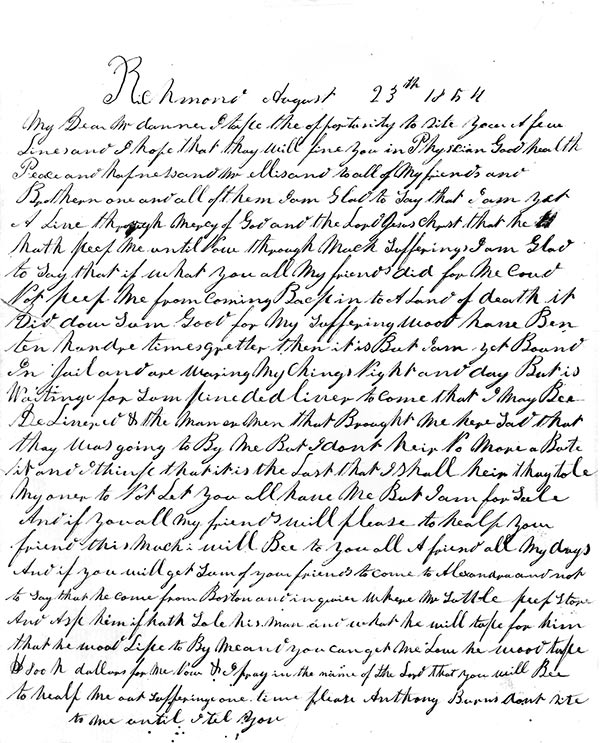 Richmond August 23th 1854
My Dear Mr danner I take the opportunity to rite you A few
Lines and I hope that thay will fine you in Physician Good health
Peace and hapness and Mr Ellis and to all of My friends and
Brothern one and all of them I am Glad to Say that I am yet
A Live through Mercy of God and the Lord Jesus Christ that he
hath keep Me until Now through Much Sufferings I am Glad
to Say that if what you all My friends did for Me Coud
Not keep Me from Coming Back in to A Land of death it
Did dow Sum Good for My Suffering wood have Ben
ten handre times gretter then it is But I am yet Bound
In Jail and are Waring My Chings Night and day But is
Waiting for Sum kine dedliver to Come that I May Bee
De Linered & the Man or Men that Brought Me here Sad that
thay Was going to By Me But I dont heir No More a Bute
it and I think that it is the Last that I Shall heir thay tole
My oner to Not Let you all have Me But I am for Sale
And if you all My friends will please to healp your
friend this Much: will Bee to you all A friend all My days
And if you will get Sum of your friends to Come to Alexandra and not
to Say that he Come from Boston and in quier Where Mr Suttle keep Store
And Ask him if hath Sole his Man and what he will take for him
that he wood Like to By Me and you Can get Me Low he wood take
dollars for Me Now & I pray in the name of the Lord that you will Bee
to healp Me out Sufferinge one time please Anthony Burns dont rite
to Me until I tel you